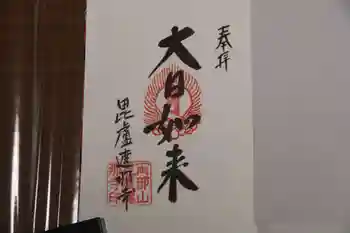 奉拝
大日如来
毘盧遮那寺